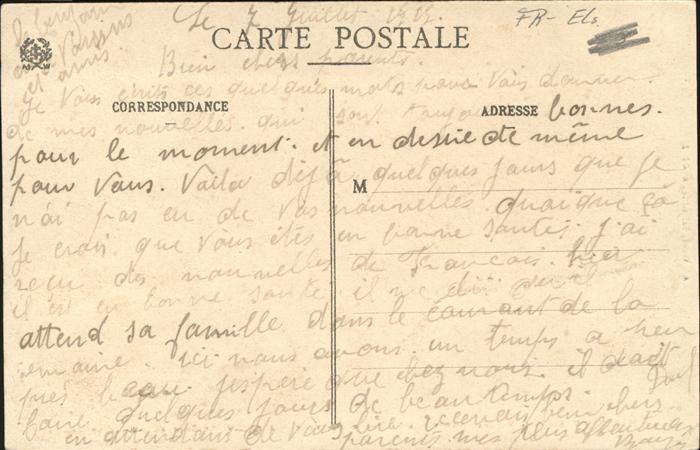 Le 7 Juillet 1915.
FR - Els.
CARTE POSTALE
Bien chers parents.
Je vous écrits ces quelques mots pour vous donner
CORRESPONDANCE
ADRESSE
de mes nouvelles. qui sont toujours bonnes.
pour le moment. et en desire de même
pour vous. Voila déjà quelques jours que je
M
n'ai pas eu de vos nouvelles. quoique ça
je crois que vous êtes en bonne santés. j'ai
reçu des nouvelles de Francois. hier
il est en bonne santé il me dit
attend sa famille dans le courant de la
semaine. ici nous avons un temps a peu
près beau. j'espère que chez nous. il doit
faire quelques jours de beau temps.
en attendant de vous lire. recevez bien chers
parents mes plus affectueux